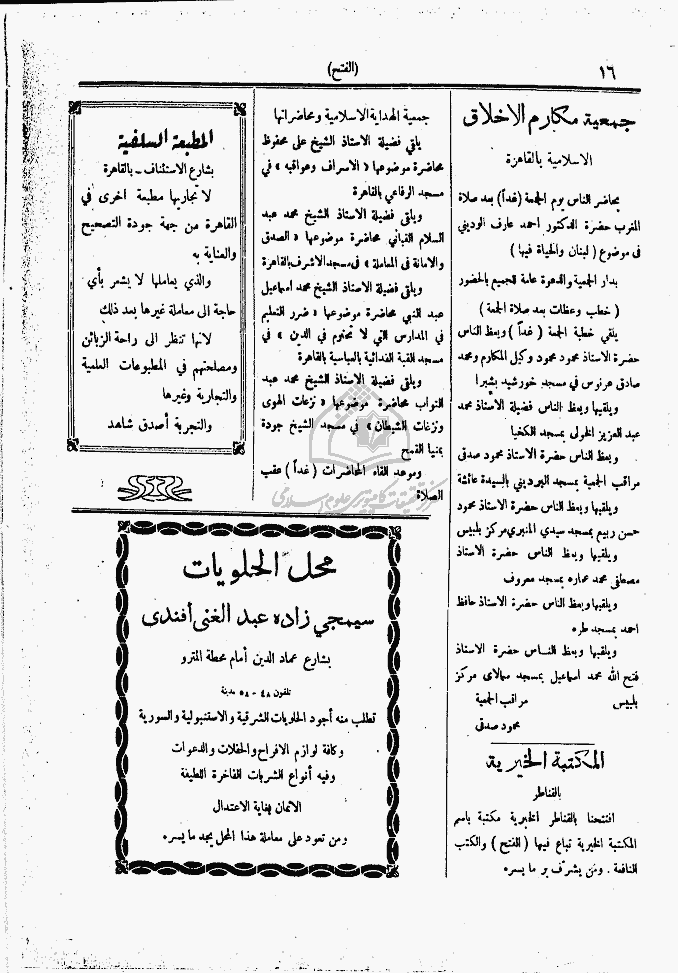 ١٦
(الفتح)
جمعية مكارم الاخلاق
الاسلامية بالقاهرة
يحاضر الناس يوم الجمعة (غداً) بعد صلاة
المغرب حضرة الدكتور احمد عارف الوديني
في موضوع ( لبنان والحياة فيها )
بدار الجمعية والدعوة عامة للجميع بالحضور
( خطب وعظات بعد صلاة الجمعة )
يلقي خطبة الجمعة ( غداً ) ويعظ الناس
حضرة الاستاذ محمود محمود وكيل المكارم ومحمد
صادق عرنوس في مسجد خورشيد بشبرا
ويلقيها ويعظ الناس فضيلة الاستاذ محمد
عبد العزيز الخولى بمسجد الكخيا
ويعظ الناس حضرة الاستاذ محمود صدقي
مراقب الجمعية بمسجد البرديني بالسيدة عائشة
ويلقيها ويعظ الناس حضرة الاستاذ محمود
حسن ربيم بمسجد سيدي المنيري مركز بلبيس
ويلقيها ويعظ الناس حضرة الاستاذ
مصطفى محمد عماره بمسجد معروف
ويلقيها ويعظ الناس حضرة الاستاذ حافظ
احمد بمسجد طره
ويلقيها ويعظ النـاس حضرة الاستاذ
فتح الله محمد اسماعيل بمسجد سمالاى مركز
بلبيس مراقب الجمعية
محمود صدقى
المكتبة الخيرية
بالقناطر
افتتحنا بالقناطر الخيرية مكتبة باسم
المكتبة الخيرية تباع فيها ( الفتح ) والكتب
النافعة . ومن يشرّف ير ما يسره
جمعية الهداية الاسلامية ومحاضراتها
يلقي فضيلة الاستاذ الشيخ على محفوظ
محاضرة موضوعها « الاسراف وعواقبه » في
مسجد الرفاعي بالقاهرة
ويلقى فضيلة الاستاذ الشيخ محمد عبد
السلام القبانى محاضرة موضوعها « الصدق
والامانة فى المعاملة » فى مسجد الاشرف بالقاهرة
ويلقى فضيلة الاستاذ الشيخ محمد اسماعيل
عبد النبي محاضرة موضوعها « ضرر التعليم
في المدارس التي لا تحتوم في الدين » في
مسجد القبة الفدائية بالعباسية بالقاهرة
ويلقى فضيلة الاستاذ الشيخ محمد عبد
التواب محاضرة موضوعها « نزعات الهوى
ونزغات الشيطان » في مسجد الشيخ جودة
بمنيا القمح
وموعد القاء المحاضرات ( غداً ) عقب
الصلاة
المطبعة السلفية
بشارع الاستئناف - بالقاهرة
لا تجاريها مطبعة اخرى في
القاهرة من جهة جودة التصحيح
والعناية به
والذي يعاملها لا يشعر بأي
حاجة الى معاملة غيرها بعد ذلك
لانها تنظر الى راحة الزبائن
ومصلحتهم في المطبوعات العلمية
والتجارية وغيرها
والتجربة أصدق شاهد
محل الحلويات
سيمجي زاده عبد الغنى أفندى
بشارع عماد الدين أمام محطة المترو
تلفون ٤٨ - ٥٨ مدينة
تطلب منه أجود الحلويات الشرقية والاستنبولية والسورية
وكافة لوازم الافراح والحفلات والدعوات
وفيه أنواع الشربات الفاخرة اللطيفة
الاثمان بغاية الاعتدال
ومن تعود على معاملة هذا المحل يجد ما يسره
مركز تحقيقات كامپيوترى علوم اسلامى